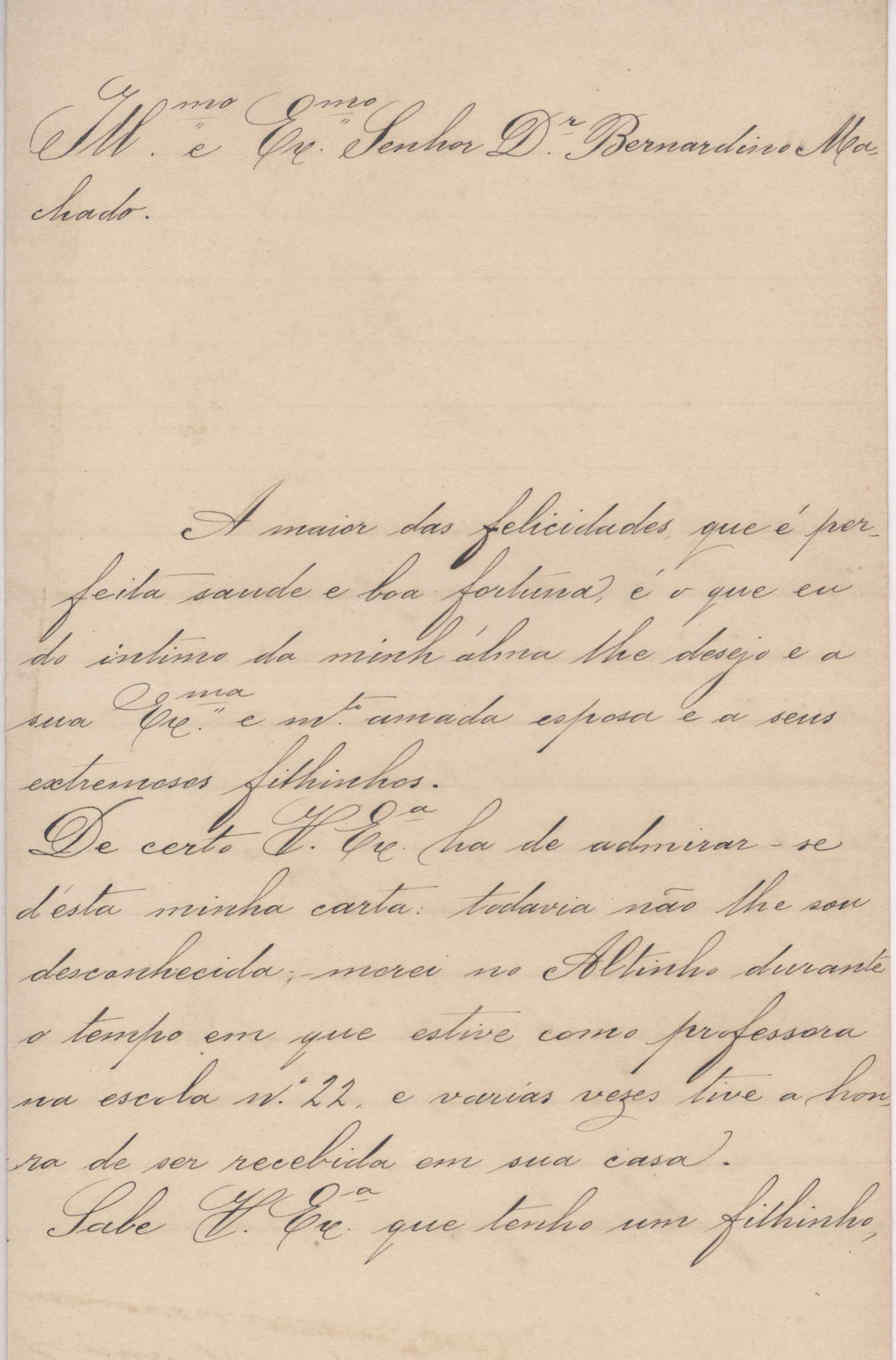 Ill.mo e Ex.mo Senhor D.r Bernardino Ma-
chado.
A maior das felicidades, que é per-
feita saude e boa fortuna, é o que eu
do intimo da minh'álma lhe desejo e a
sua Ex.ma e m.to amada esposa e a seus
extremosos filhinhos.
De certo V. Ex.a ha de admirar-se
d'esta minha carta: todavia não lhe sou
desconhecida; morei no Altinho durante
o tempo em que estive como professora
na escola n.º 22, e varias vezes tive a hon-
ra de ser recebida em sua casa.
Sabe V. Ex.a que tenho um filhinho,